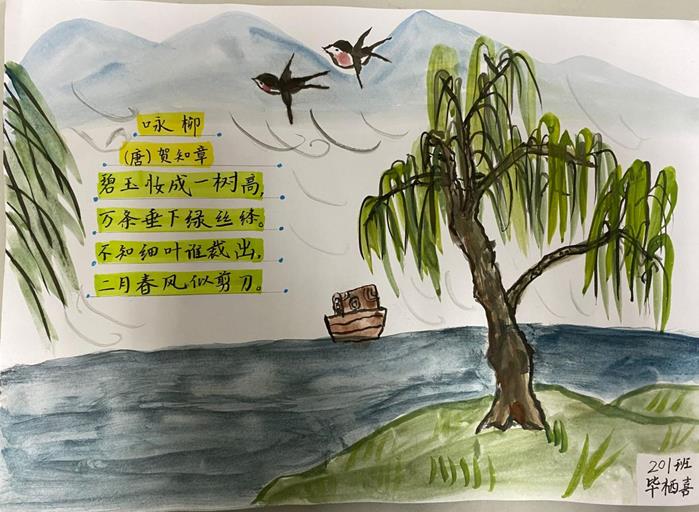 咏柳
(唐)贺知章
碧玉妆成一树高,
万条垂下绿丝绦。
不知细叶谁裁出,
二月春风似剪刀。
201班
毕栖喜